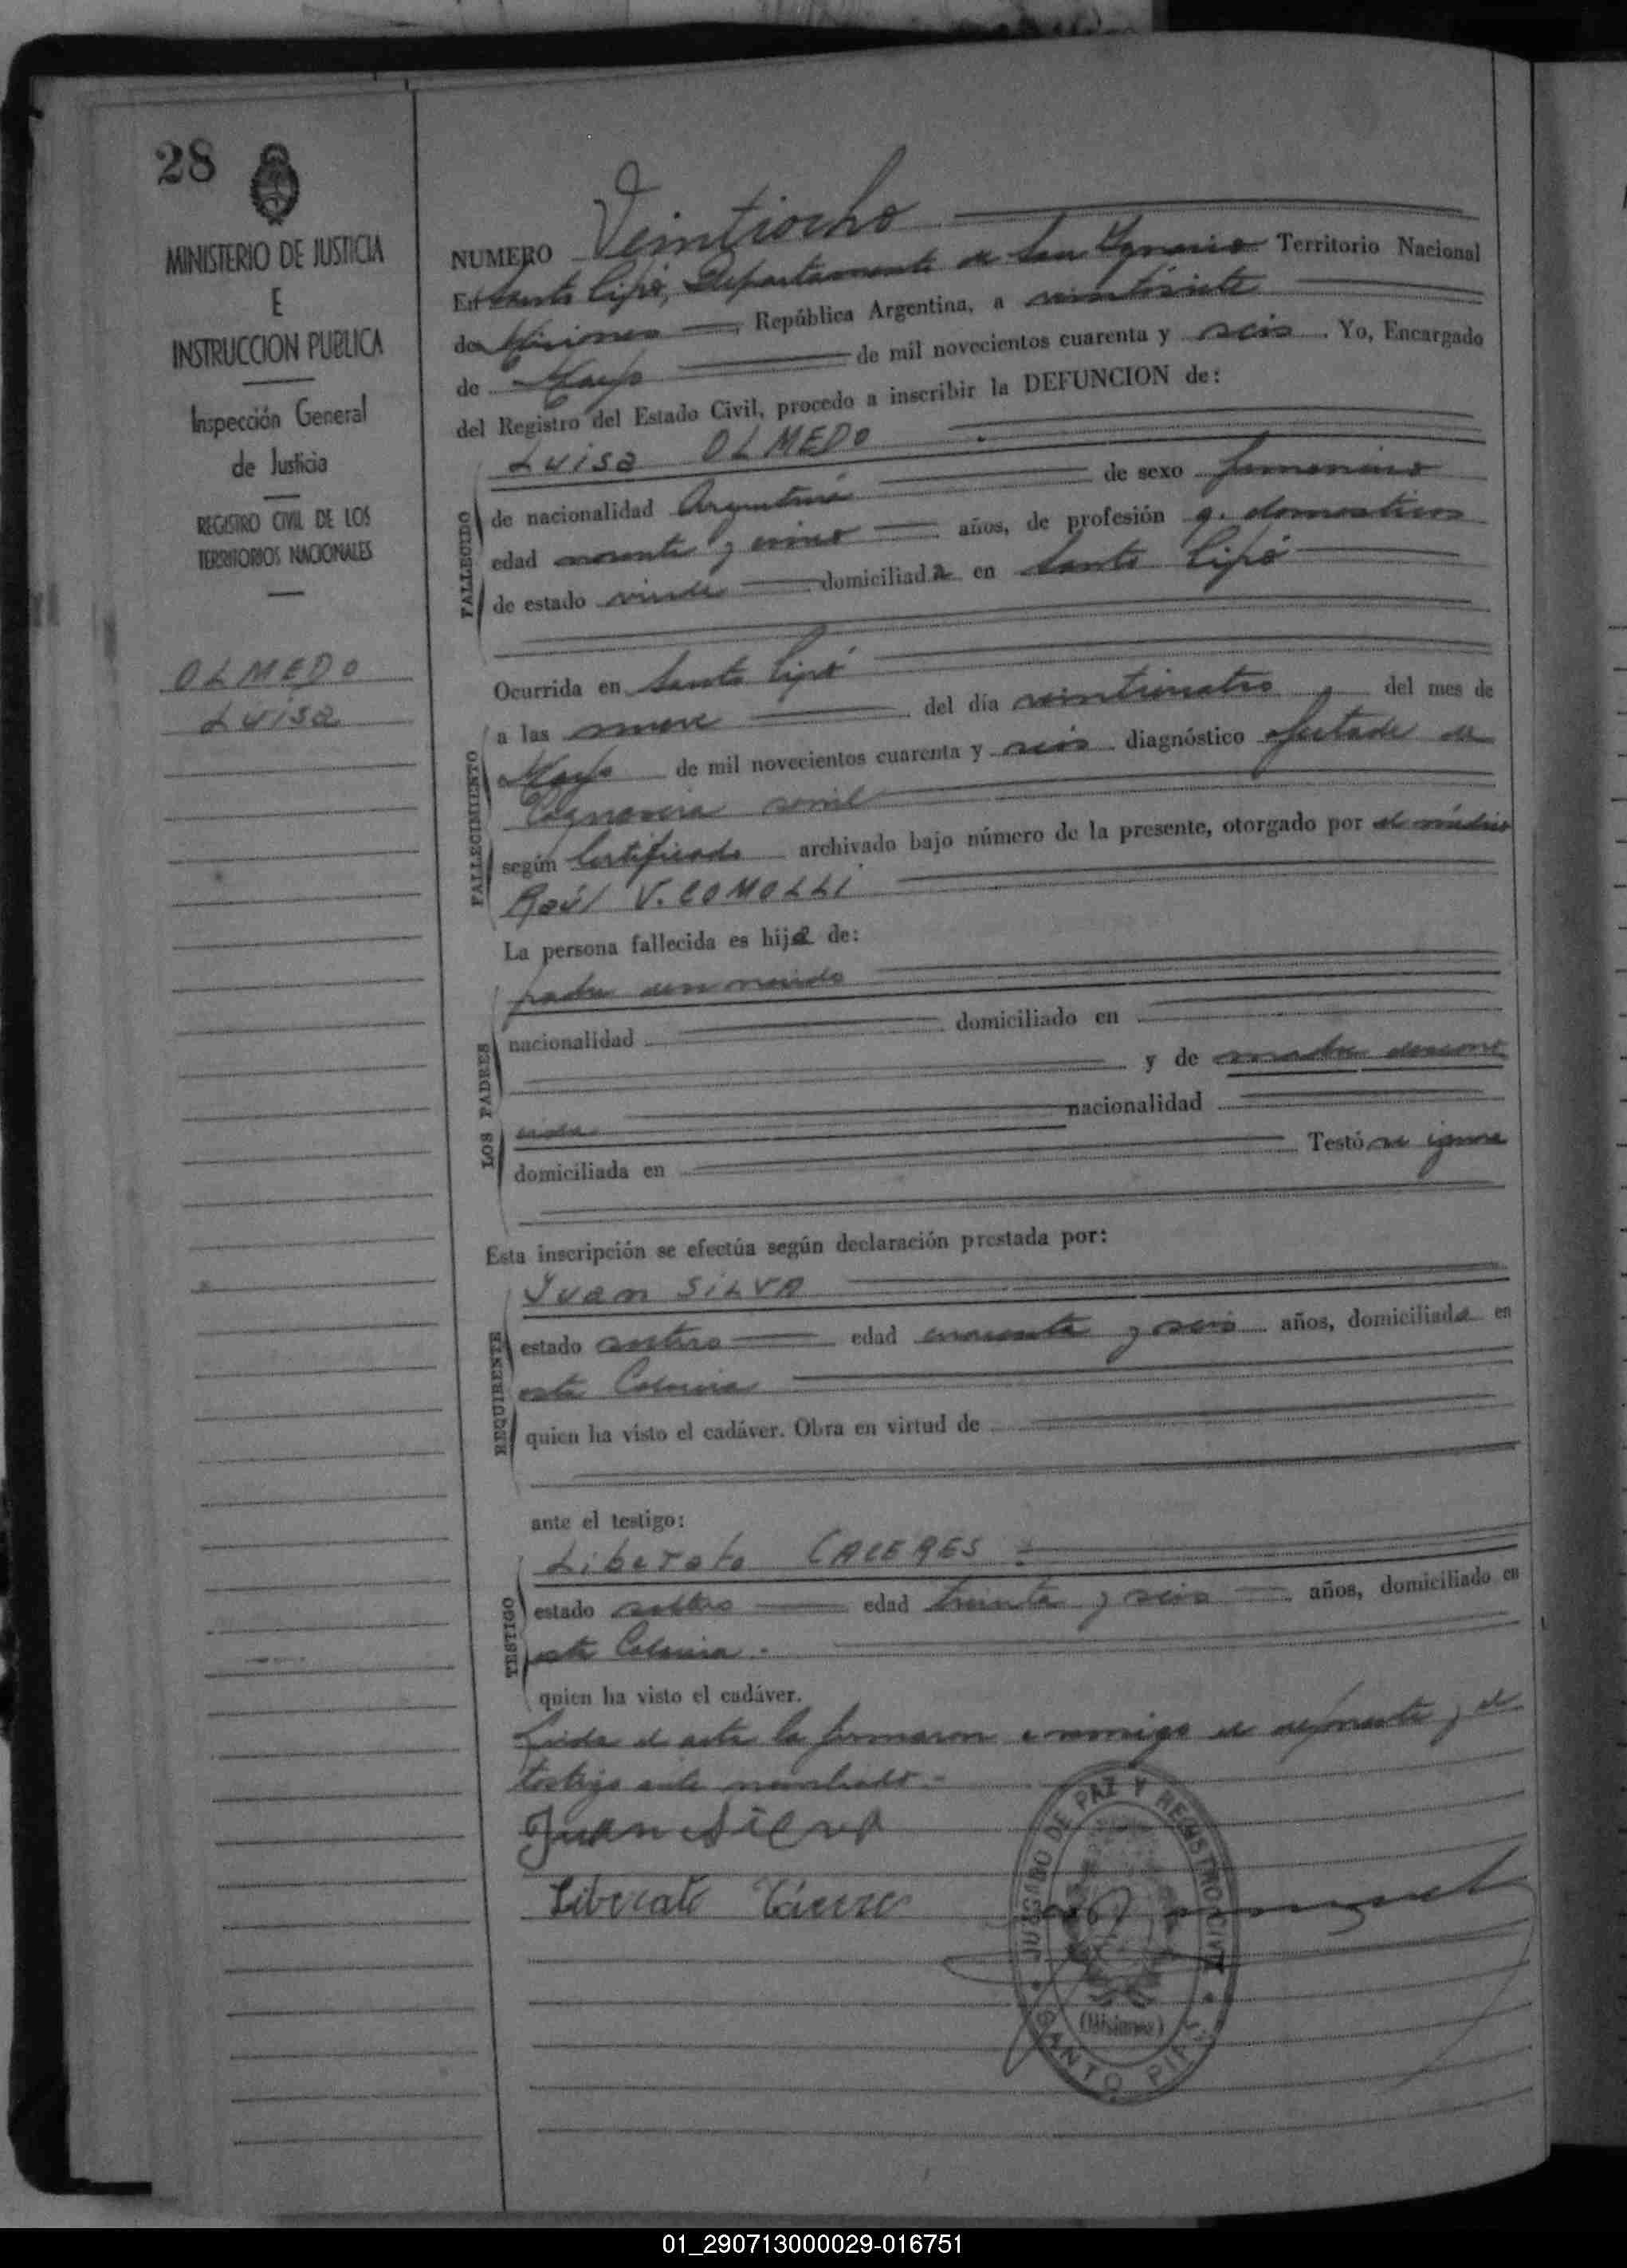 28
MINISTERIO DE JUSTICIA
E
INSTRUCCION PUBLICA
Inspección General
de Justicia
REGISTRO CIVIL DE LOS
TERRITORIOS NACIONALES
OLMEDO
Luisa
NUMERO Veintiocho
En Santo Pipó, Departamento de San Ygnacio Territorio Nacional
de Misiones, República Argentina, a veintisiete
de Mayo de mil novecientos cuarenta y seis. Yo, Encargado
del Registro del Estado Civil, procedo a inscribir la DEFUNCION de:
Luisa OLMEDO
FALLECIDO
de nacionalidad Argentina de sexo femenino
edad noventa y cinco años, de profesión q. domesticos
de estado viuda domiciliada en Santo Pipó
FALLECIMIENTO
Ocurrida en Santo Pipó
a las nueve del día veinticuatro, del mes de
Mayo de mil novecientos cuarenta y seis diagnóstico afectada de
senil
según Certificado archivado bajo número de la presente, otorgado por el médico
Raúl V. COMOLLI
La persona fallecida es hija de:
LOS PADRES
padre
nacionalidad domiciliado en
y de madre descono
cida
nacionalidad
domiciliada en Testó se ignora
Esta inscripción se efectúa según declaración prestada por:
REQUIRENTE
Juan SILVA
estado soltero edad cuarenta y seis años, domiciliado en
esta Colonia
quien ha visto el cadáver. Obra en virtud de
ante el testigo:
TESTIGO
Liberato CACERES
estado soltero edad treinta y seis años, domiciliado en
esta Colonia.
quien ha visto el cadáver.
Leida el acta la firmaron conmigo el deponente y el
testigo ante nombrado.-
Juan Silva
Liberato Cáceres
JUZGADO DE PAZ Y REGISTRO CIVIL
(Misiones)
SANTO PIPÓ
01_290713000029-016751